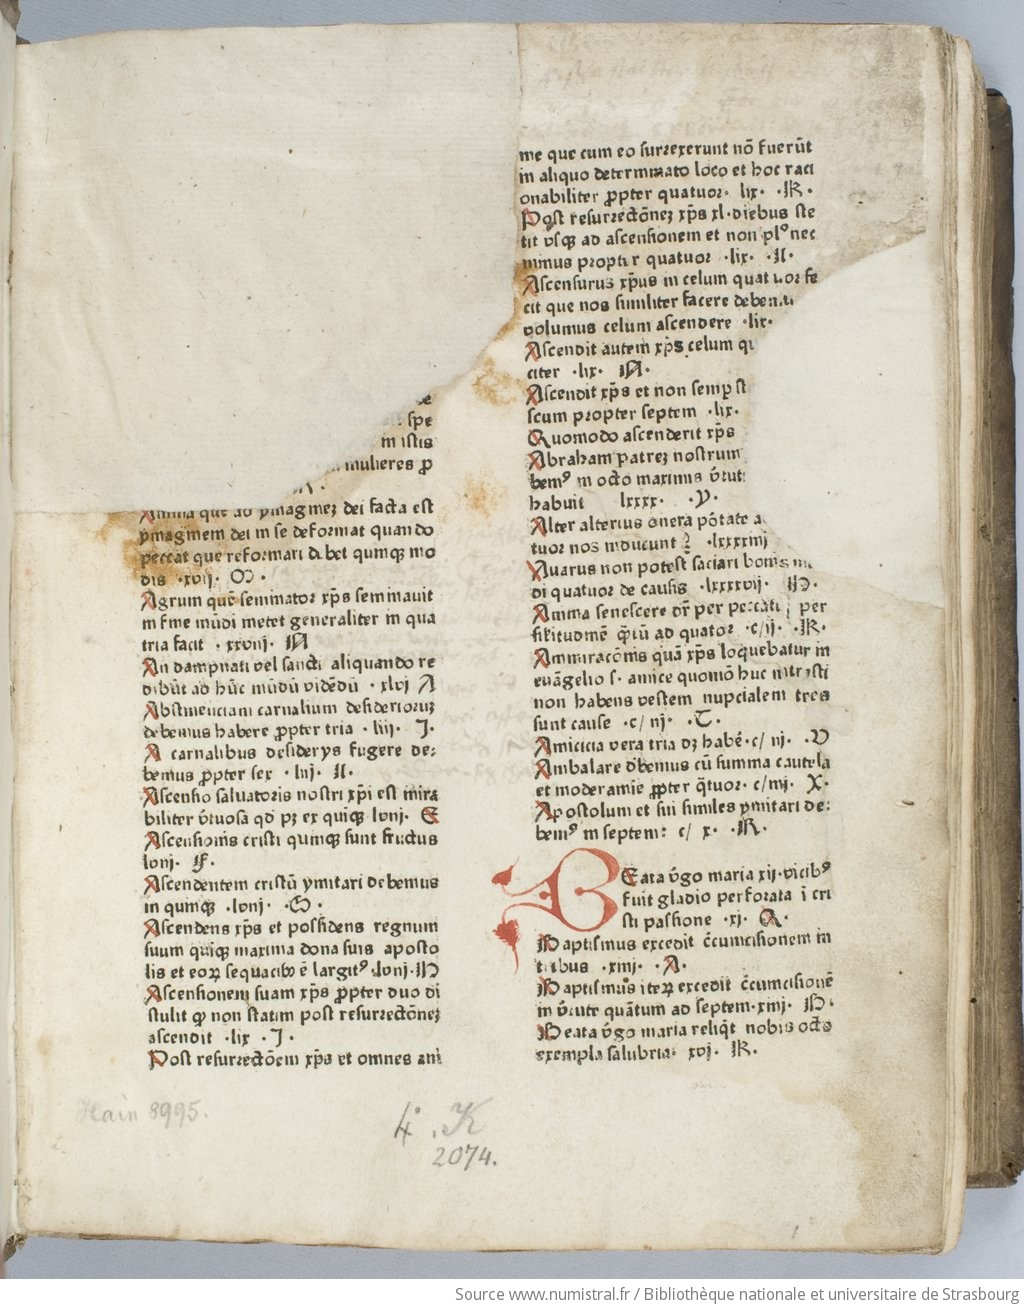 spe
m istis
mulieres ꝓ
Anima que ad ymagineʒ dei facta est
ymaginem dei in se deformat quando
peccat que reformari debet quinqꝫ mo
dis ·xvij· M·
Agrum quē seminator xp̄s seminauit
in fine mūdi metet generaliter in qua
tria facit · xxviij· N
An dampnati vel sancti aliquando re
dibūt ad hūc mūdū vidēdū · xlvj A
Abstinenciam carnalium desideriorūʒ
debemus habere ꝓpter tria · liij· J·
A carnalibus desiderys fugere de:
bemus ꝓpter sex · liij· K·
Ascensio saluatoris nostri xp̄i est mira
biliter v̄tuosa qd̄ pꝫ ex quīqꝫ lviij· E
Ascensionis cristi quinqꝫ sunt fructus
lviij· F·
Ascendentem cristū ymitari debemus
in quinqꝫ ·lviij· ·G·
Ascendens xp̄s et possidens regnum
suum quīqꝫ maxima dona suis aposto
lis et eoꝝ sequacibꝫ ē largitꝰ lviij·H
Ascensionem suam xp̄s ꝓpter duo di
stulit ꝙ non statim post resurrectōneʒ
ascendit ·lix · J·
Post resurrectōem xp̄s et omnes ani
me que cum eo surrexerunt nō fuerūt
in aliquo determinato loco et hoc raci
onabiliter ꝓpter quatuor· lix· ·K·
Post resurrectōneʒ xp̄s xl·diebus ste
tit vsqꝫ ad ascensionem et non plꝰ nec
minus propter quatuor ·lix· ·L·
Ascensurus xp̄us in celum quatuor fe
cit que nos similiter facere debemu
volumus celum ascendere ·lix·
Ascendit autem xp̄s celum qu
citer ·lix· N·
Ascendit xp̄s et non semꝑ st
scum propter septem ·lix·
Quomodo ascenderit xp̄s
Abraham patreʒ nostrum
bemꝰ in octo maximis v̄tut
habuit lxxx· ·V·
Alter alterius onera pōtate a
tuor nos inducunt ·lxxxiiij
Auarus non potest saciari bonis m
di quatuor de causis ·lxxxvij· H·
Anima senescere dr̄ per peccati per
fixitudinē q̄tū ad quatuor ·c/ij· ·K·
Ammiracōnis quā xp̄s loquebatur in
euāgelio s· amice quomō huc intrasti
non habens vestem nupcialem tres
sunt cause ·c/ iij· ·T·
Amicicia vera tria dꝫ habē·c/ iij· ·V
Ambulare d̄bemus cū summa cautela
et moderamīe ꝓpter q̄tuor·c/iiij· X·
Apostolum et sui similes ymitari de:
bemꝰ in septem: c/ x· ·K·
BEata v̄go maria xij·vicibꝰ
fuit gladio perforata ī cri
sti passione ·xj· Q·
Baptismus excedit c̄cumcisionem in
tribus ·xiij· ·A·
Baptismus iteꝝ excedit c̄cumcisionē
in v̄tute quātum ad septem·xiij· B·
Beata v̄go maria reliq̄t nobis octo
exempla salubria· xvj· K·
Hain 8995.
4° .K
2074.
Source www.numistral.fr / Bibliothèque nationale et universitaire de Strasbourg